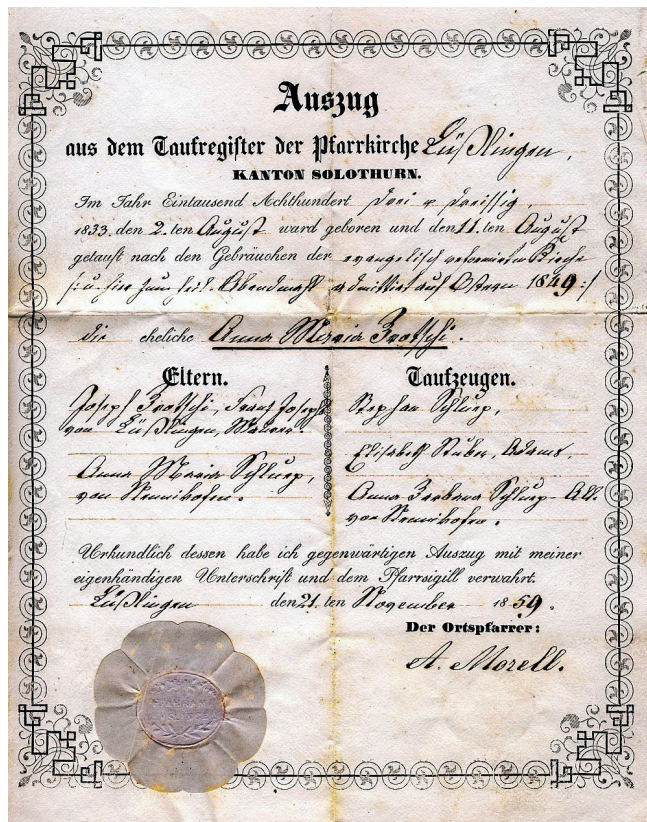 Auszug
aus dem Taufregister der Pfarrkirche Lüßlingen,
KANTON SOLOTHURN.
Im Jahr Eintausend Achthundert drei u. dreissig,
1833. den 2.ten August ward geboren und den 11.ten August
getauft nach den Gebräuchen der evangelisch reformirten Kirche
/: u. hier zum heil. Abendmahl admittirt auf Ostern 1849 :/
die eheliche Anna Maria Frotschi.
Eltern.
Taufzeugen.
Joseph Frotschi, Franz Josephs
von Lüßlingen, Maurer.
Anna Maria Schlup,
von Nennikofen.
Stephan Schlup,
Elisabeth Stuber, Adams,
Anna Barbara Schlup
von Nennikofen.
Urkundlich dessen habe ich gegenwärtigen Auszug mit meiner
eigenhändigen Unterschrift und dem Pfarrsigill verwahrt.
Lüßlingen den 21.ten November 1859.
Der Ortspfarrer:
A. Morell.